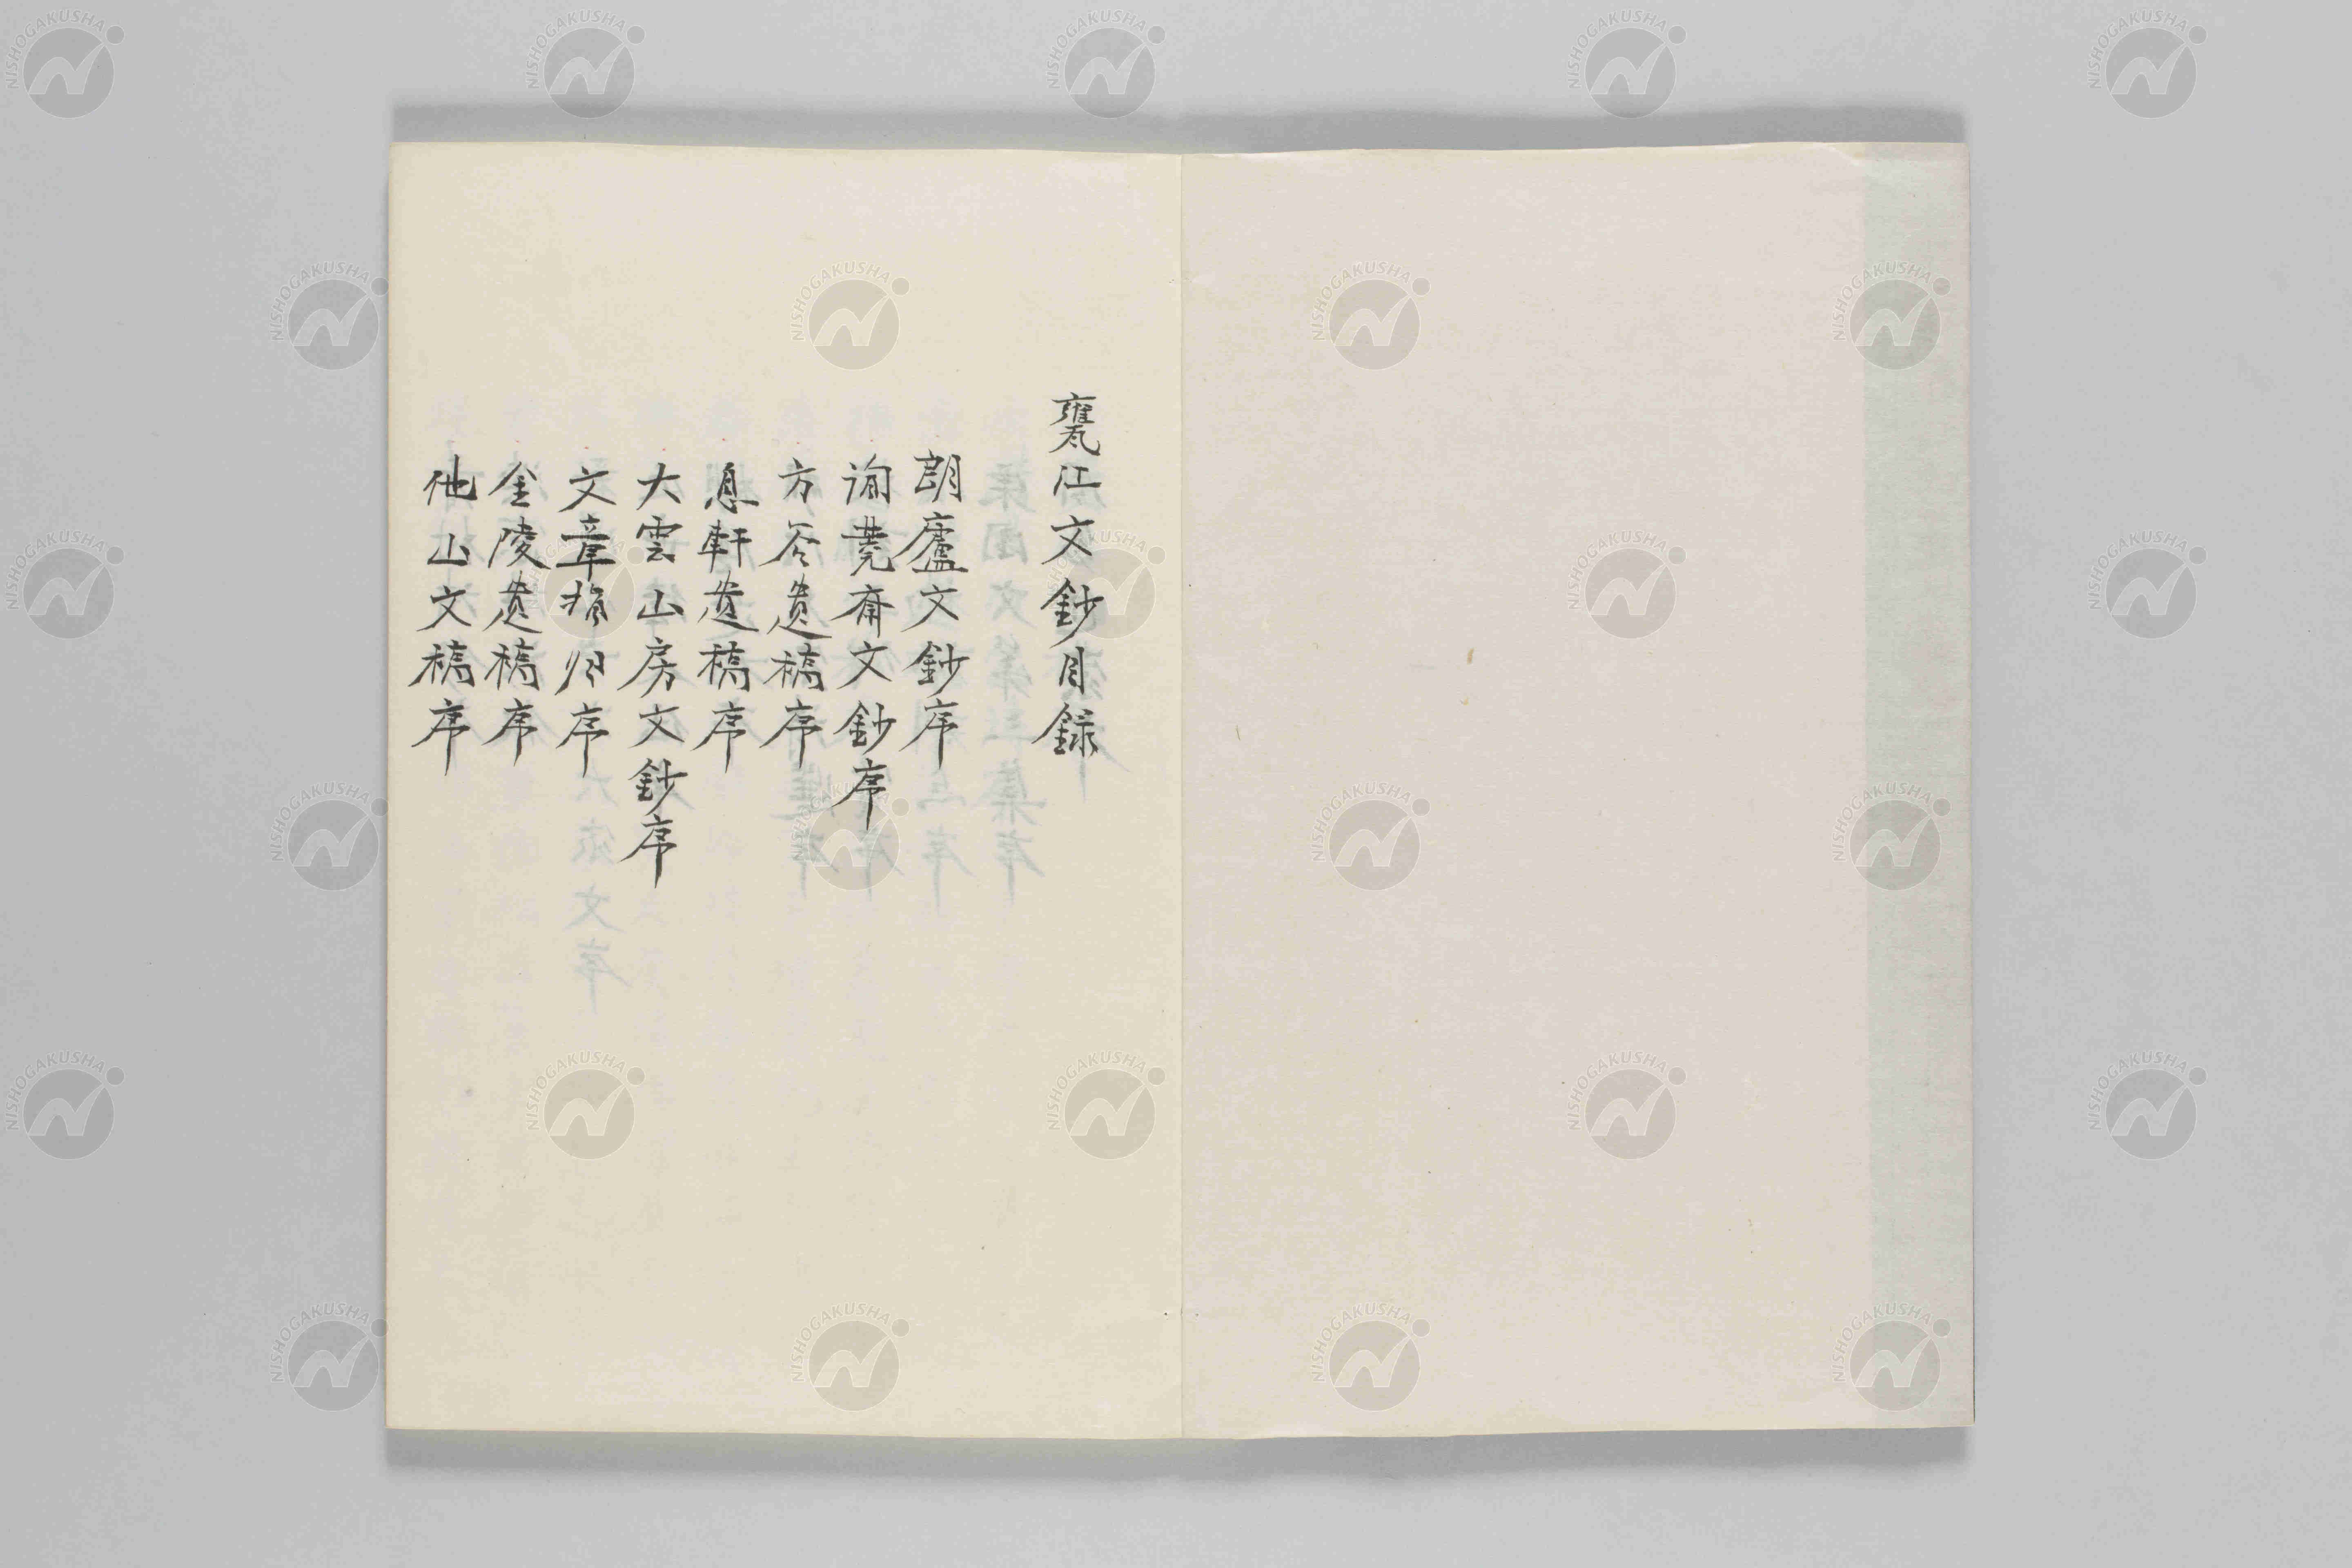 甕江文鈔目録
朗廬文鈔序
詢蕘齋文鈔序
方谷遺稿序
息軒遺稿序
大雲山房文鈔序
文章指归序
金陵遺稿序
他山文稿序
NISHOGAKUSHA